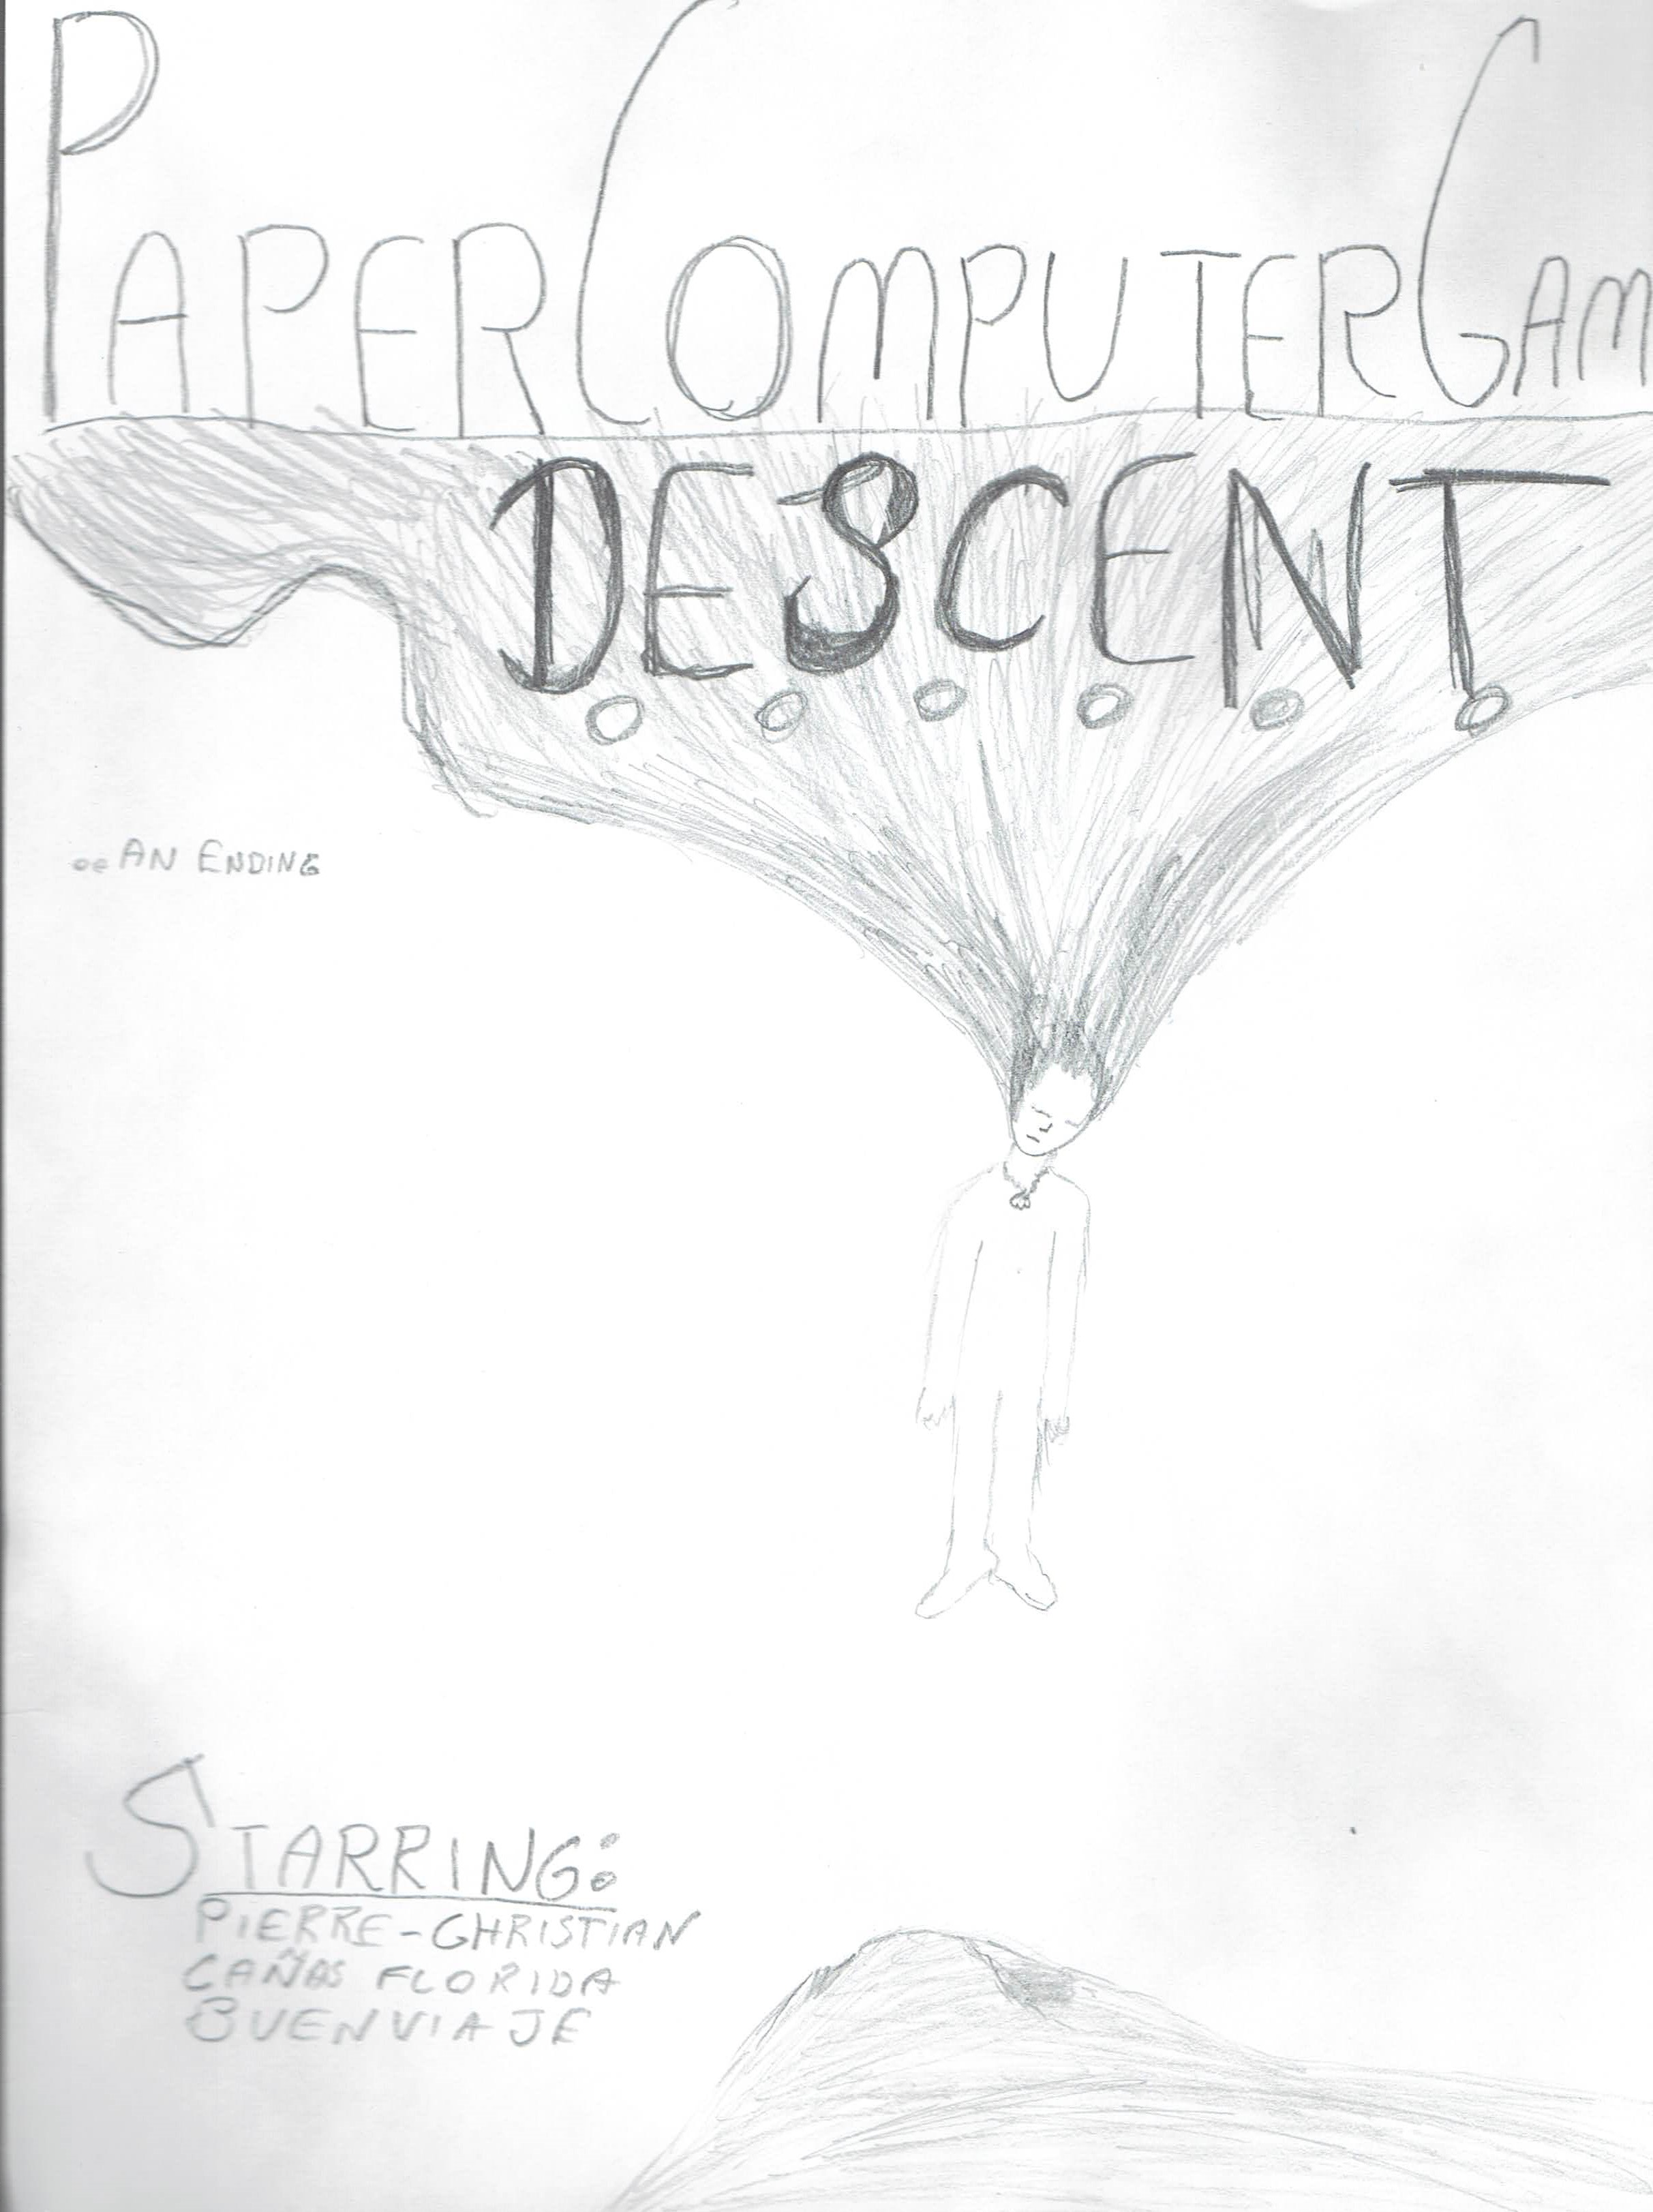 PAPERCOMPUTERGAM
DESCENT
..AN ENDING
STARRING:
PIERRE-CHRISTIAN
CAÑAS FLORIDA
BUENVIAJE